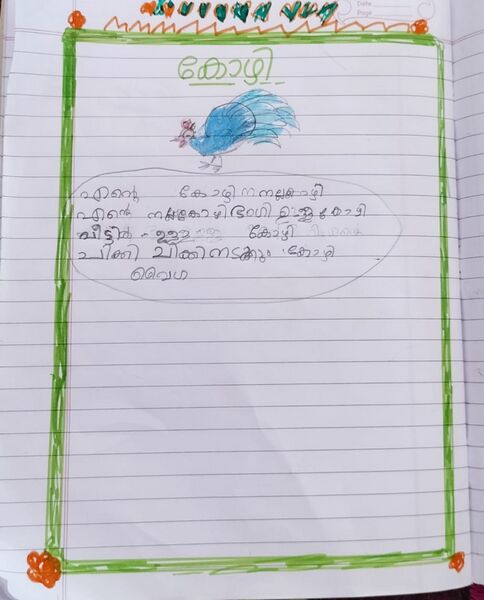 Date
Page
കോഴി
എന്റെ കോഴി നല്ലകോഴി
എന്റെ നല്ലകോഴി ഭംഗി ഉള്ള കോഴി
വീട്ടിൽ ഉള്ള കോഴി
ചിക്കി ചിക്കിനടക്കും കോഴി
വൈഗ